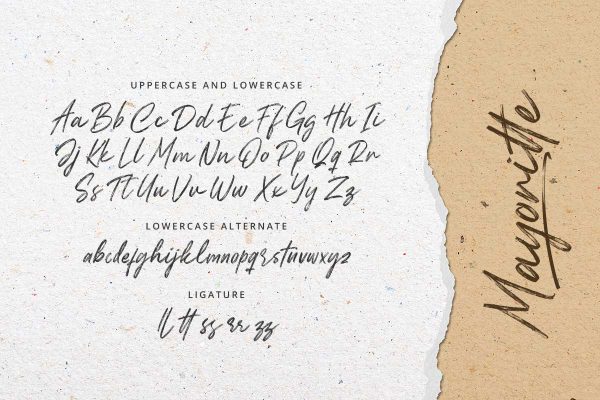 UPPERCASE AND LOWERCASE
Aa Bb Cc Dd Ee Ff Gg Hh Ii
Jj Kk Ll Mm Nn Oo Pp Qq Rr
Ss Tt Uu Vv Ww Xx Yy Zz
LOWERCASE ALTERNATE
abcdefghijklmnopqrstuvwxyz
LIGATURE
ll tt ss rr zz
Mayonitte